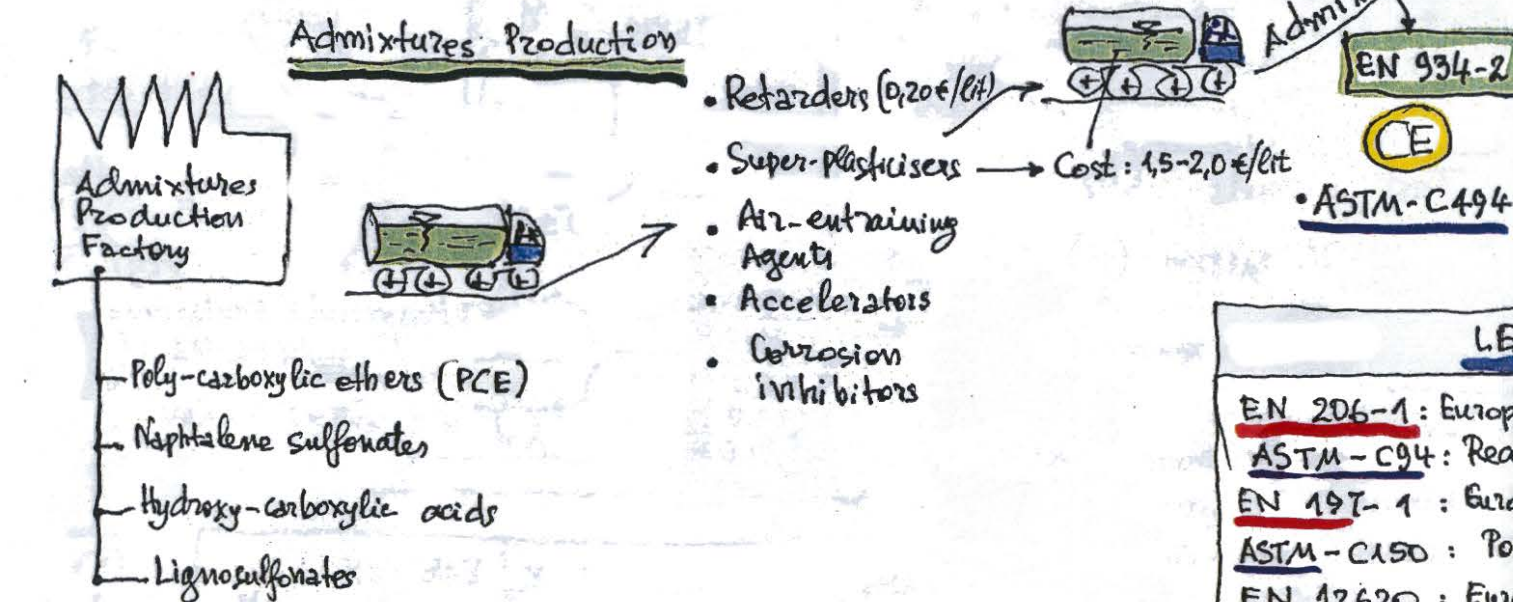 Admixtures Production
Admixtures
Production
Factory
Poly-carboxylic ethers (PCE)
Naphtalene sulfonates
Hydroxy-carboxylic acids
Lignosulfonates
• Retarders (0,20€/lit)
• Super-plasticisers → Cost: 1,5-2,0 €/lit
• Air-entraining
Agents
• Accelerators
• Corrosion
inhibitors
EN 934-2
CE
• ASTM-C494
EN 206-1:
ASTM-C94:
EN 197-1:
ASTM-C150:
EN 12620: